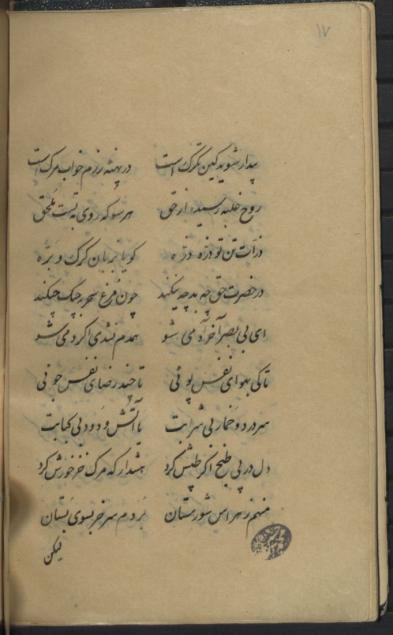 ۱۷
بیدار شوید کین تگرگ است در پهنه رزم خواب مرگ است
روح غلبه رسیده از حق هر سو که روی تست ملحق
ذرات تن تو ذره ذره گویا بزبان گرگ و بره
در حضرت حق چه بد چه نیکند چون مرغ سحر چکند
ای بی بصر آخر آدمی شو همدم نشدی اگر دمی شو
تا کی بهوای نفس پوئی تا چند رضای نفس جوئی
سر درد و خمار بی شرابت با آتش و دود بی کبابت
دل در پی طبخ اگر طپش کرد هشدار که مرگ خر خورش کرد
منهم ز هراس شورمستان بردم سر خر بسوی بستان
لیکن